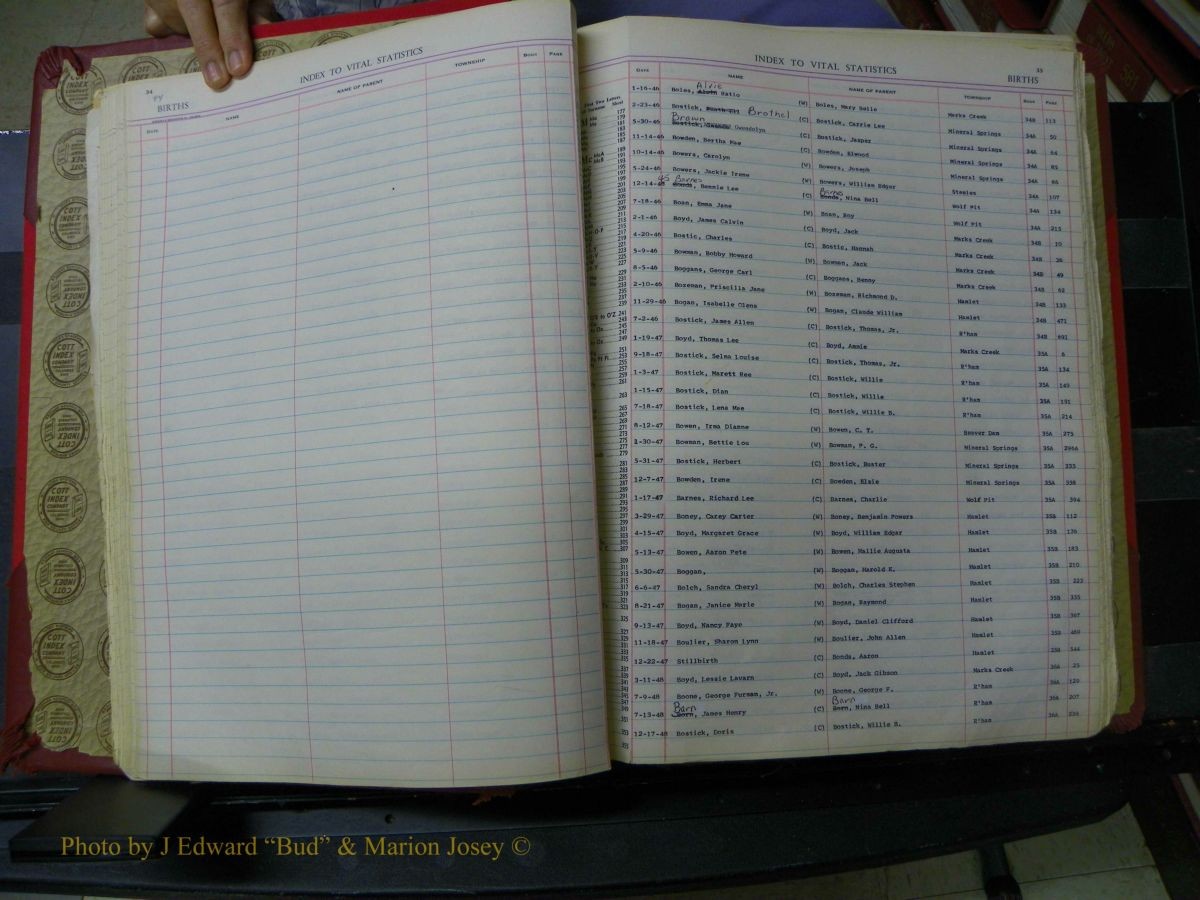 34
INDEX TO VITAL STATISTICS
BIRTHS
DATE NAME NAME OF PARENT TOWNSHIP BOOK PAGE
COTT INDEX COMPANY
INDEX TO VITAL STATISTICS
35
BIRTHS
DATE NAME NAME OF PARENT TOWNSHIP BOOK PAGE
Alvie
1-16-46 Boles, Alvin Ratio (W) Boles, Mary Belle Marks Creek 34B 113
2-23-46 Bostick, Brothel (C) Bostick, Carrie Lee Mineral Springs 34A 50
Brown
5-30-46 Bostick, Gwendolyn (C) Bostick, Jasper Mineral Springs 34A 64
11-14-46 Bowden, Bertha Mae (C) Bowden, Elwood Mineral Springs 34A 85
10-14-46 Bowers, Carolyn (W) Bowers, Joseph Mineral Springs 34A 86
5-24-46 Bowers, Jackie Irene (W) Bowers, William Edgar Steeles 34A 107
45 Barnes Barnes
12-14-46 Bonds, Bennie Lee (C) Bonds, Nina Bell Wolf Pit 34A 134
7-18-46 Boan, Emma Jane (W) Boan, Roy Wolf Pit 34A 215
2-1-46 Boyd, James Calvin (C) Boyd, Jack Marks Creek 34B 10
4-20-46 Bostic, Charles (C) Bostic, Hannah Marks Creek 34B 26
5-9-46 Bowman, Bobby Howard (W) Bowman, Jack Marks Creek 34B 49
8-5-46 Boggans, George Carl (C) Boggans, Benny Marks Creek 34B 62
2-10-46 Bozeman, Priscilla Jane (W) Bozeman, Richmond D. Hamlet 34B 133
11-29-46 Bogan, Isabelle Glenn (W) Bogan, Claude William Hamlet 34B 471
7-2-46 Bostick, James Allen (C) Bostick, Thomas, Jr. R'ham 34B 691
1-19-47 Boyd, Thomas Lee (C) Boyd, Annie Marks Creek 35A 6
9-18-47 Bostick, Selma Louise (C) Bostick, Thomas, Jr. R'ham 35A 134
1-3-47 Bostick, Marett Hee (C) Bostick, Willie R'ham 35A 149
1-15-47 Bostick, Dian (C) Bostick, Willie R'ham 35A 191
7-18-47 Bostick, Lena Mae (C) Bostick, Willie B. R'ham 35A 214
8-12-47 Bowen, Irma Dianne (W) Bowen, C. T. Beaver Dam 35A 275
1-30-47 Bowman, Bettie Lou (W) Bowman, P. G. Mineral Springs 35A 296A
5-31-47 Bostick, Herbert (C) Bostick, Buster Mineral Springs 35A 333
12-7-47 Bowden, Irene (C) Bowden, Elsie Mineral Springs 35A 338
1-17-47 Barnes, Richard Lee (C) Barnes, Charlie Wolf Pit 35A 394
3-29-47 Boney, Carey Carter (W) Boney, Benjamin Powers Hamlet 35B 112
4-15-47 Boyd, Margaret Grace (W) Boyd, William Edgar Hamlet 35B 126
5-13-47 Bowen, Aaron Pete (W) Bowen, Mallie Augusta Hamlet 35B 183
5-30-47 Boggan, (W) Boggan, Harold K. Hamlet 35B 210
6-6-47 Bolch, Sandra Cheryl (W) Bolch, Charles Stephen Hamlet 35B 223
8-21-47 Bogan, Janice Marie (W) Bogan, Raymond Hamlet 35B 335
9-13-47 Boyd, Nancy Faye (W) Boyd, Daniel Clifford Hamlet 35B 367
11-18-47 Boulier, Sharon Lynn (W) Boulier, John Allen Hamlet 35B 469
12-22-47 Stillbirth (C) Bonds, Aaron Hamlet 35B 544
3-11-48 Boyd, Lessie Lavarn (C) Boyd, Jack Gibson Marks Creek 36A 25
7-9-48 Boone, George Furman, Jr. (W) Boone, George F. R'ham 36A 120
Barn Barn
7-13-48 Born, James Henry (C) Born, Nina Bell R'ham 36A 207
12-17-48 Bostick, Doris (C) Bostick, Willie B. R'ham 36A
Photo by J Edward “Bud” & Marion Josey ©